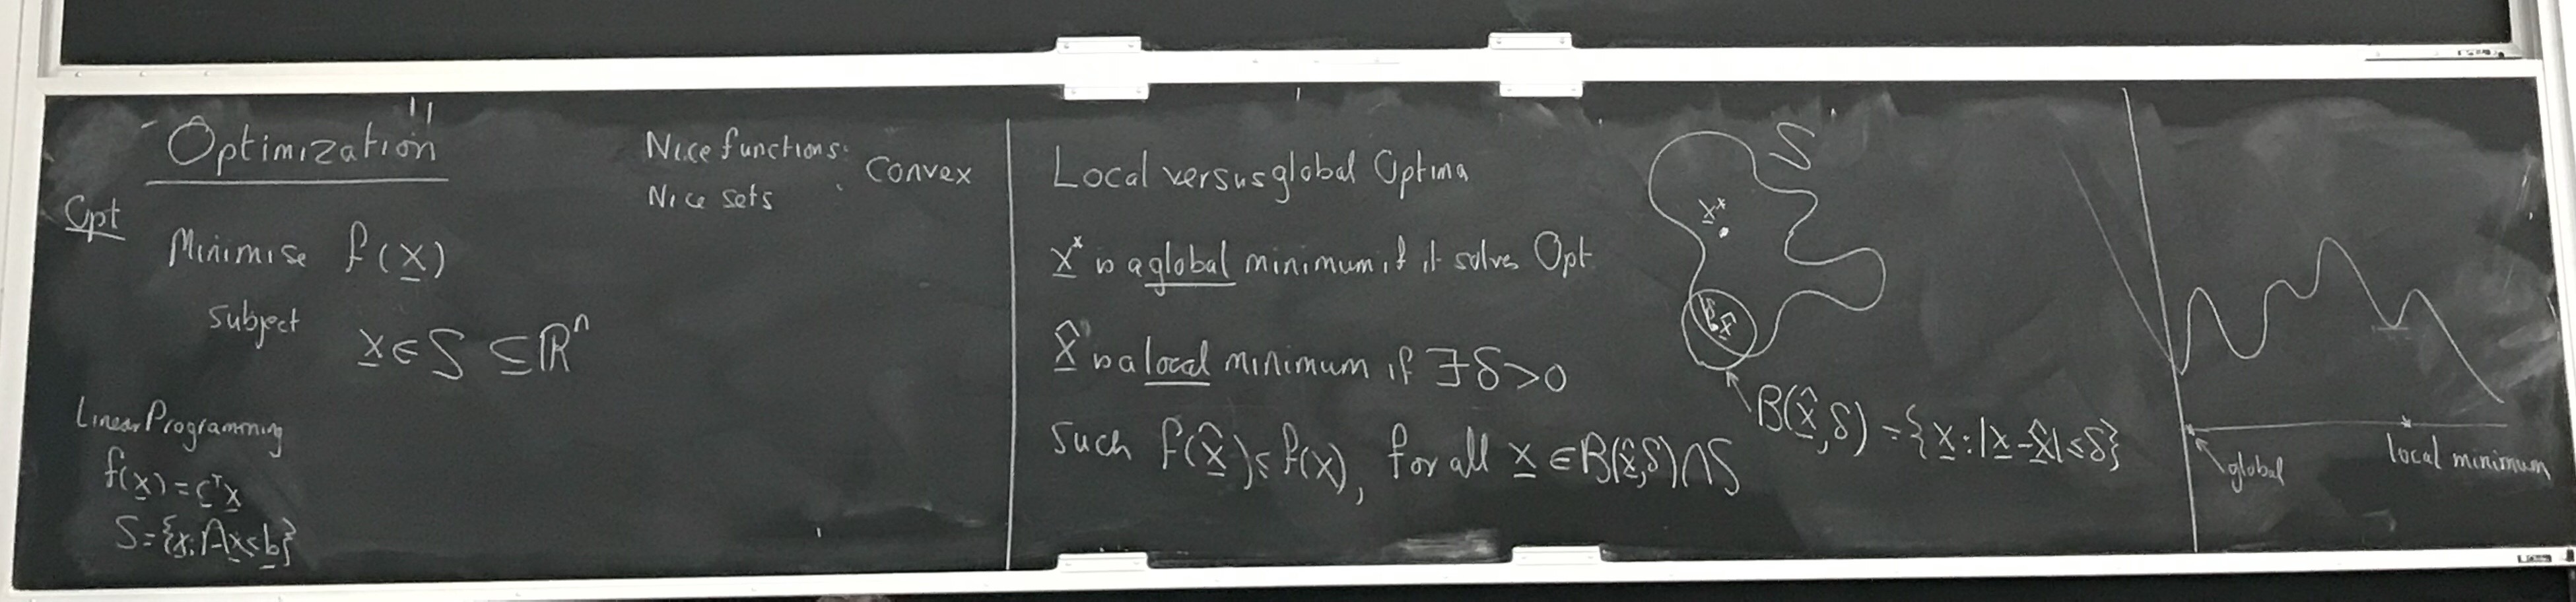 Optimization
Opt
Minimise f(x)
Subject x ∈ S ⊆ ℝⁿ
Linear Programming
f(x) = cᵀx
S = {x: Ax ≤ b}
Nice functions: Convex
Nice sets
Local versus global Optima
x* is a global minimum if it solves Opt
x̂ is a local minimum if ∃ δ > 0
such f(x̂) ≤ f(x), for all x ∈ B(x̂,δ) ∩ S
S
x*
x̂
B(x̂,δ) = {x: |x - x̂| ≤ δ}
global
local minimum